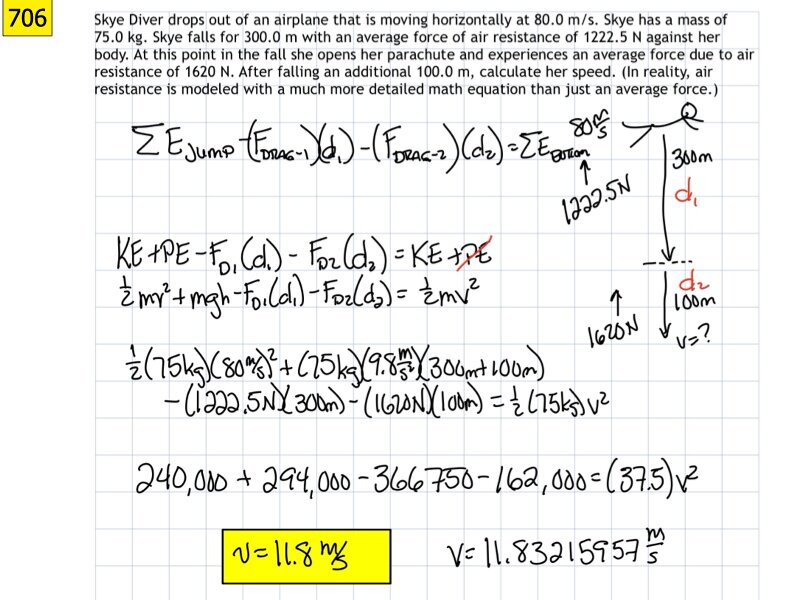 706
Skye Diver drops out of an airplane that is moving horizontally at 80.0 m/s. Skye has a mass of
75.0 kg. Skye falls for 300.0 m with an average force of air resistance of 1222.5 N against her
body. At this point in the fall she opens her parachute and experiences an average force due to air
resistance of 1620 N. After falling an additional 100.0 m, calculate her speed. (In reality, air
resistance is modeled with a much more detailed math equation than just an average force.)
ΣE_JUMP -(F_DRAG-1)(d₁) - (F_DRAG-2)(d₂) = ΣE_BOTTOM
80 m/s
1222.5N
300m
d₁
KE+PE-F_D1(d₁) - F_D2(d₂) = KE+PE
½mv²+mgh-F_D1(d₁)-F_D2(d₂) = ½mv²
d₂
100m
1620N
v=?
½(75kg)(80m/s)²+(75kg)(9.8m/s²)(300m+100m)
-(1222.5N)(300m)-(1620N)(100m) = ½(75kg)v²
240,000 + 294,000 - 366750 - 162,000 = (37.5)v²
v=11.8 m/s
v=11.83215957 m/s